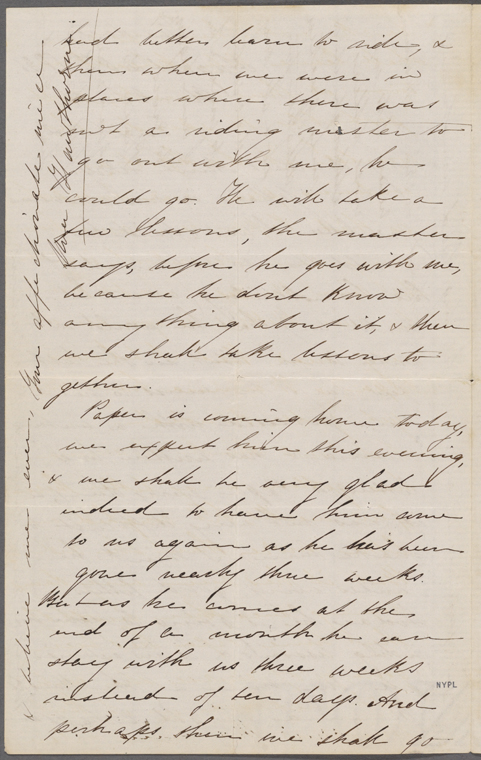 had better learn to ride, &
then when we were in
places where there was
n't a riding master to
go out with me, he
could go. He will take a
few lessons, the master
says, before he goes with me,
because he dont know
anything about it, & then
we shall take lessons to
gether.
Papa is coming home today,
we expect him this evening,
& we shall be very glad
indeed to have him come
to us again as he has been
gone nearly three weeks.
But as he comes at the
end of a month he can
stay with us three weeks
instead of ten days. And
perhaps then we shall go
& believe me ever, Your affectionate niece
Una Hawthorne
NYPL